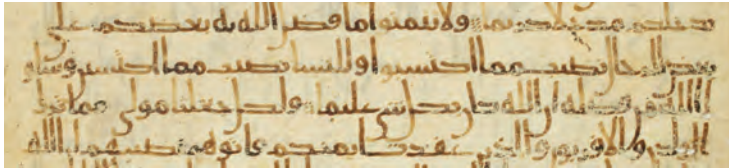 ندخلكم مدخلا كريما ولا تتمنوا ما فضل الله به بعضكم على
بعض للرجال نصيب مما اكتسبوا وللنسا نصيب مما اكتسبن وسلو
ا الله من فضله ان الله كان بكل شي عليما ولكل جعلنا مولي مما ترك
الولدن والاقربون والذين عقدت ايمنكم فاتوهم نصيبهم ان الله